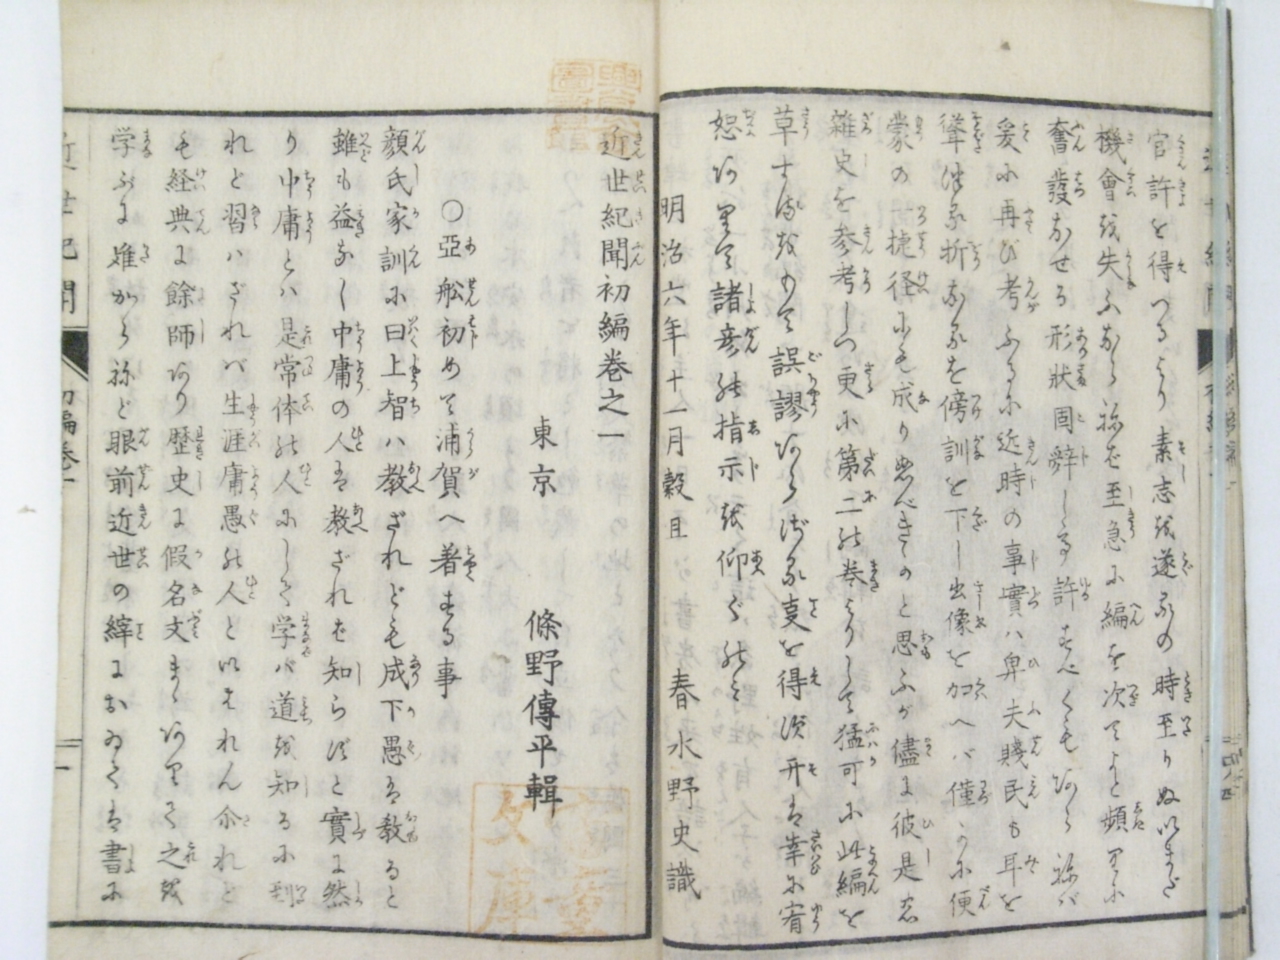 官許を得つるより素志を遂るの時至りぬいまだ
機會を失ふならねど至急に編を次てよと頻りに
奮發なせる形状固辞しも許すべくもあらねば
爰に再び考ふるに近時の事實ハ卑夫賤民も耳を
聳つる折なるを傍訓を下し出像を加へバ僅かに便
蒙の捷径にも成り
と思ふが儘に彼是の
雑史を参考しつ更に第二の巻よりして猛可に此編を
草しぬるもて誤謬あらざる事を得ず开は幸に宥
恕ありて諸彦の指示を仰ぐのみ
明治六年十一月穀旦 春水野史識
近世紀聞初編巻之一
東京 條野傳平輯
○亞舩初めて浦賀へ著する事
顔氏家訓に曰上智ハ教ざれども成下愚は教ると
雖も益なし中庸の人は教ざれば知らずと實に然
り中庸とハ是常体の人にして学バ道を知るに到
れと習ハざれバ生涯庸愚の人といはれん尒れど
も経典に餘師あり歴史に假名文ましありて之を
学ぶに難からねど眼前近世の縡においては書に
近世紀聞 初編巻一 一